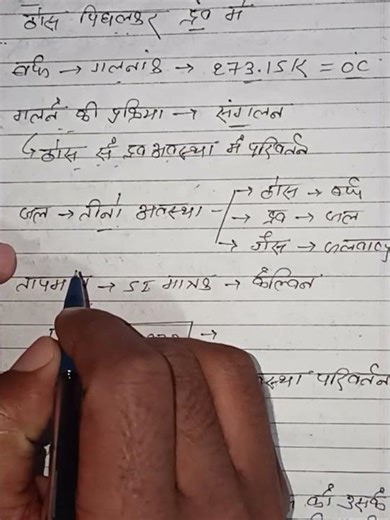 ठोस पिघलकर द्रव में
बर्फ → गलनांक → 273.15K = 0C
गलने की प्रक्रिया → संगलन
↳ ठोस से द्रव अवस्था में परिवर्तन
जल → तीनो अवस्था → ठोस → बर्फ
→ द्रव → जल
→ गैस → जलवाष्प
→ SI मात्रक → केल्विन
→
परिवर्तन
को उसके